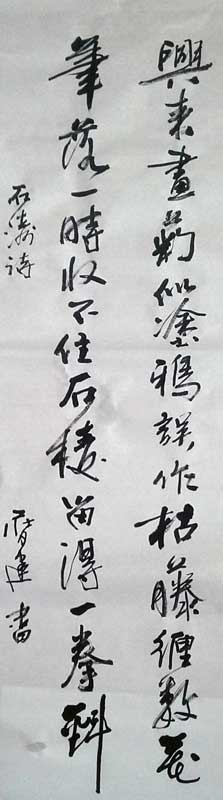 興来畫菊似塗鴉誤作枯藤纏數花
筆落一時收不住石棱留得一拳斜
石濤詩
建書